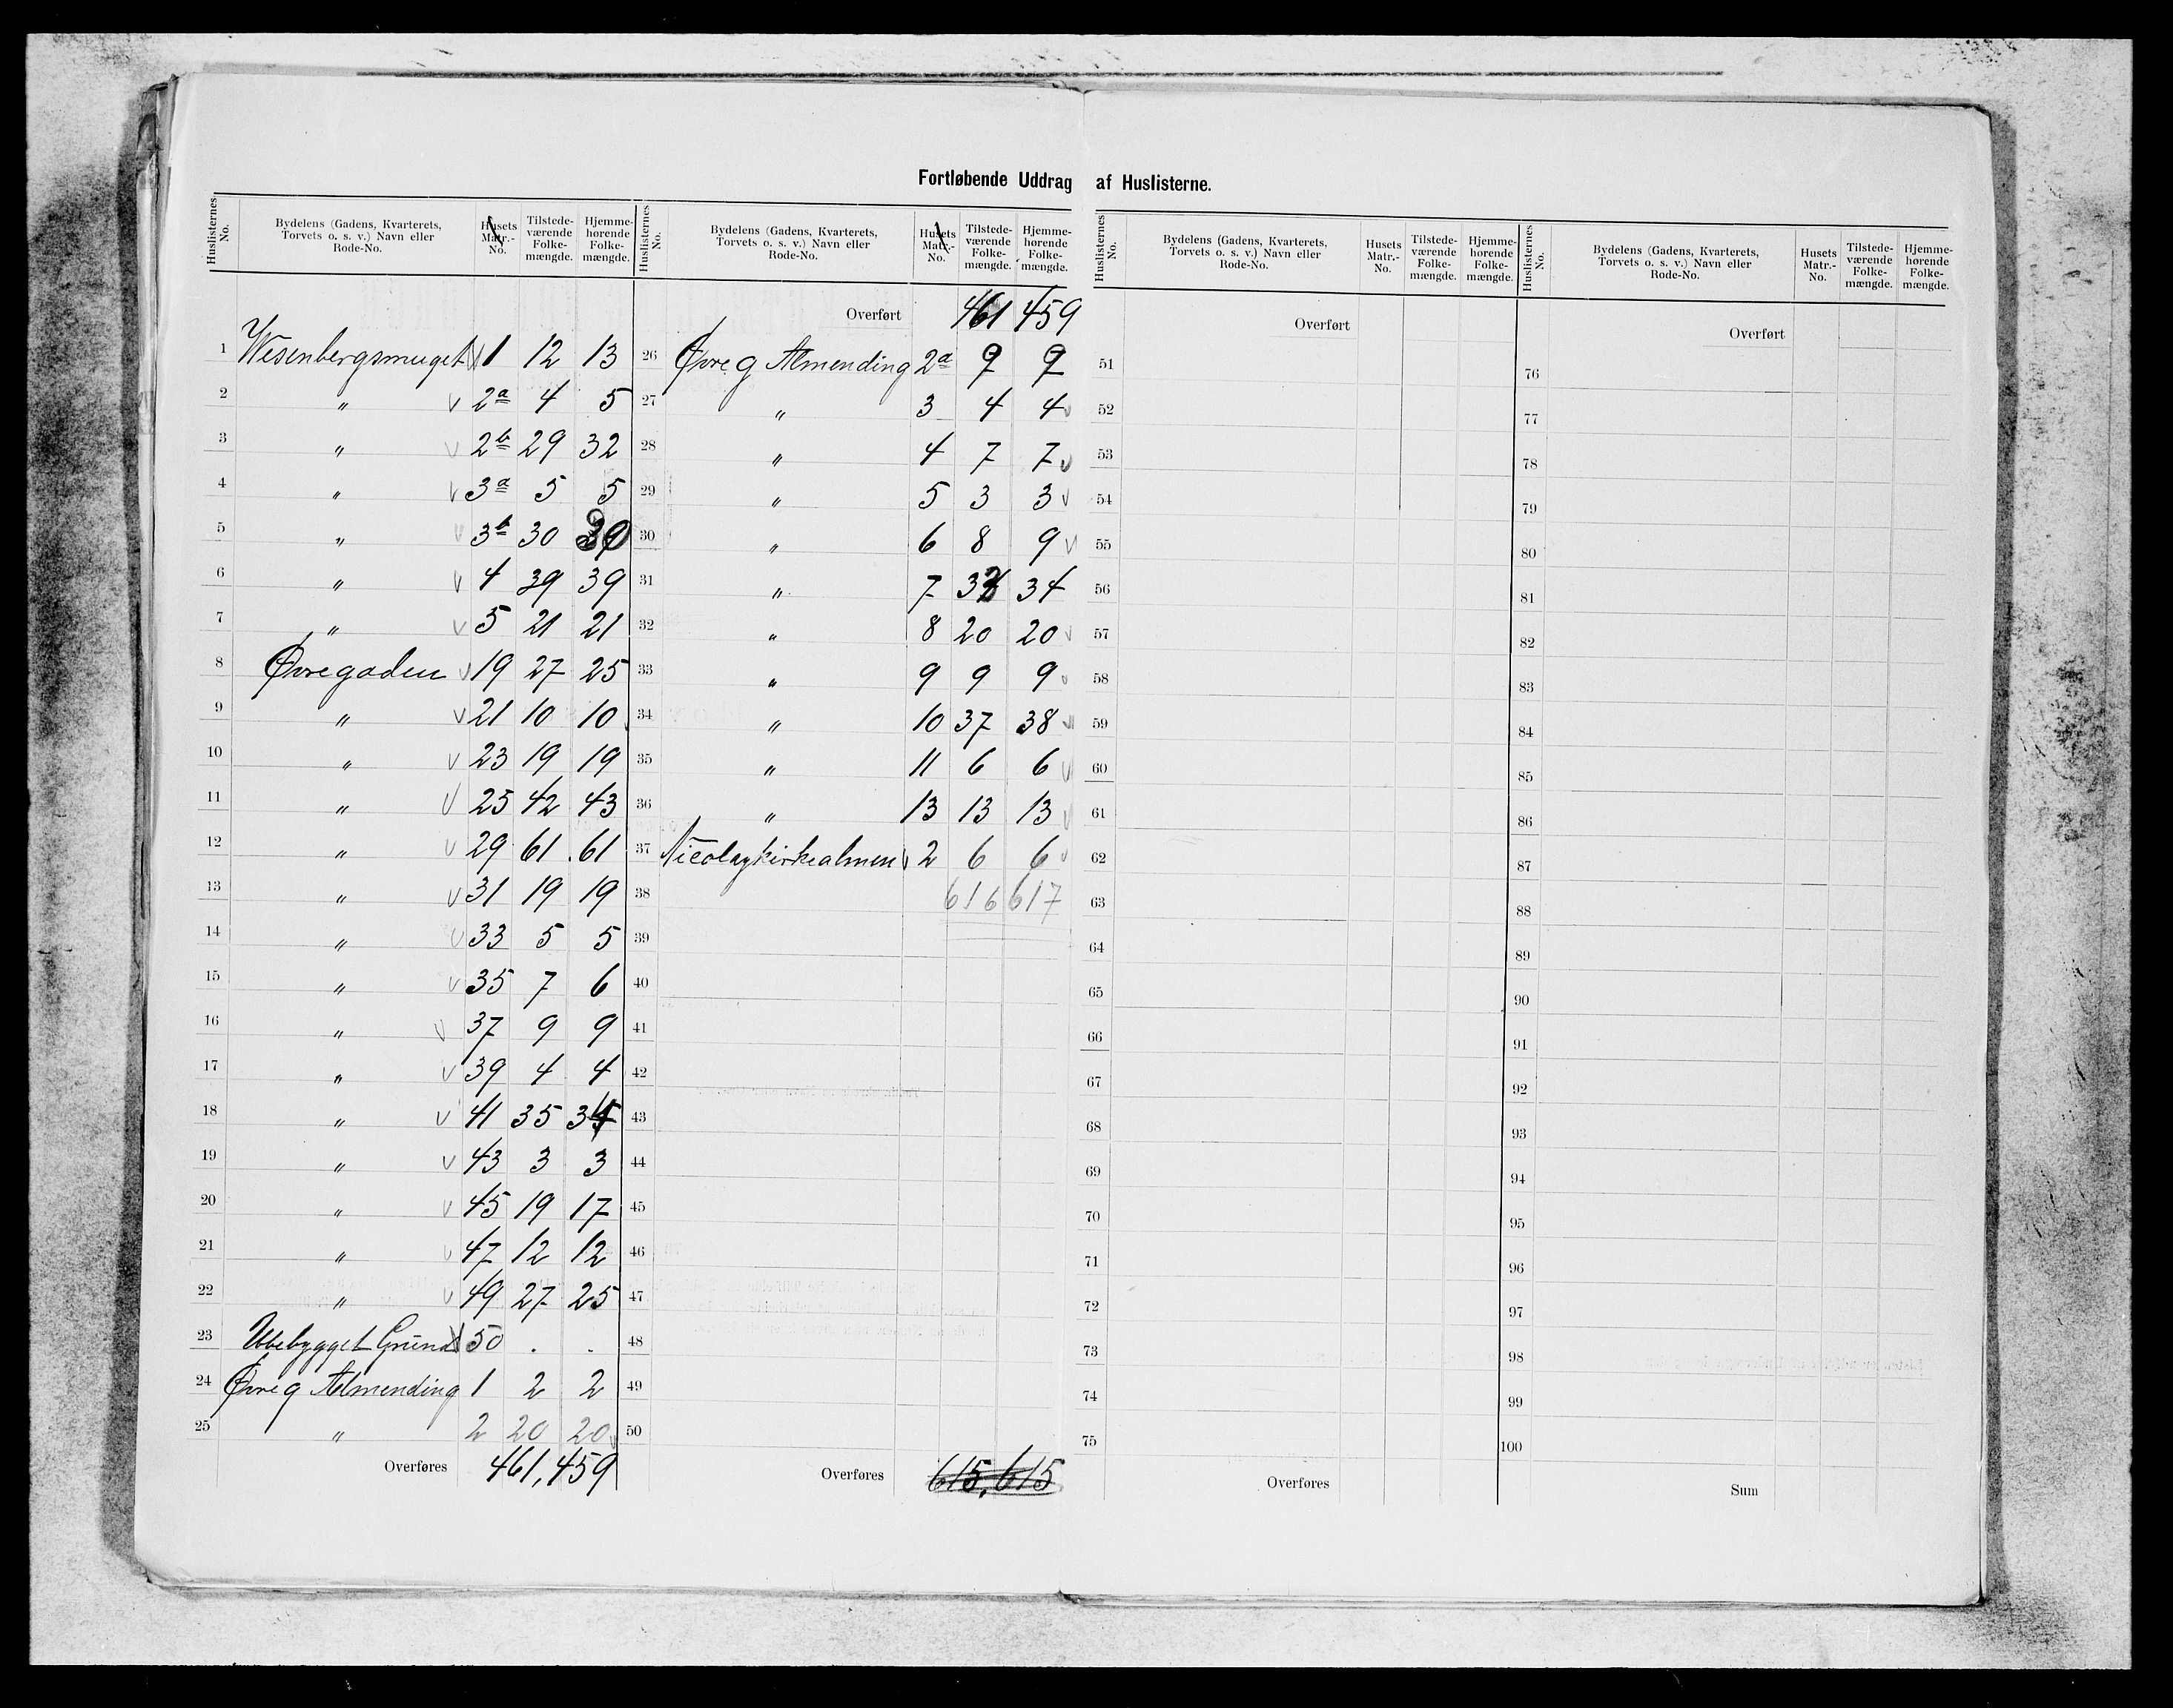 Fortløbende Uddrag af Huslisterne.
Huslisternes No. | Bydelens (Gadens, Kvarterets, Torvets o. s. v.) Navn eller Rode-No. | Husets Matr.-No. | Tilstedeværende Folkemængde. | Hjemmehørende Folkemængde.
1 Wesenbergsmuget 1 12 13
2 " 2a 4 5
3 " 2b 29 32
4 " 3a 5 5
5 " 3b 30
6 " 4 39 39
7 " 5 21 21
8 Øvregaden 19 27 25
9 " 21 10 10
10 " 23 19 19
11 " 25 42 43
12 " 29 61 61
13 " 31 19 19
14 " 33 5 5
15 " 35 7 6
16 " 37 9 9
17 " 39 4 4
18 " 41 35
19 " 43 3 3
20 " 45 19 17
21 " 47 12 12
22 " 49 27 25
23 Ubebygget Grund 50 . .
24 Øvreg Almending 1 2 2
25 " 2 20 20
Overføres 461, 459
Huslisternes No. | Bydelens (Gadens, Kvarterets, Torvets o. s. v.) Navn eller Rode-No. | Husets Matr.-No. | Tilstedeværende Folkemængde. | Hjemmehørende Folkemængde.
Overført 461 459
26 Øvreg Almending 2a 9 9
27 " 3 4 4
28 " 4 7 7
29 " 5 3 3
30 " 6 8 9
31 " 7 34
32 " 8 20 20
33 " 9 9 9
34 " 10 37 38
35 " 11 6 6
36 " 13 13 13
37 Nicolaykirkealmen 2 6 6
38 616 617
39
40
41
42
43
44
45
46
47
48
49
50
Overføres 615, 615
Huslisternes No. | Bydelens (Gadens, Kvarterets, Torvets o. s. v.) Navn eller Rode-No. | Husets Matr.-No. | Tilstedeværende Folkemængde. | Hjemmehørende Folkemængde.
Overført
51
52
53
54
55
56
57
58
59
60
61
62
63
64
65
66
67
68
69
70
71
72
73
74
75
Overføres
Huslisternes No. | Bydelens (Gadens, Kvarterets, Torvets o. s. v.) Navn eller Rode-No. | Husets Matr.-No. | Tilstedeværende Folkemængde. | Hjemmehørende Folkemængde.
Overført
76
77
78
79
80
81
82
83
84
85
86
87
88
89
90
91
92
93
94
95
96
97
98
99
100
Sum